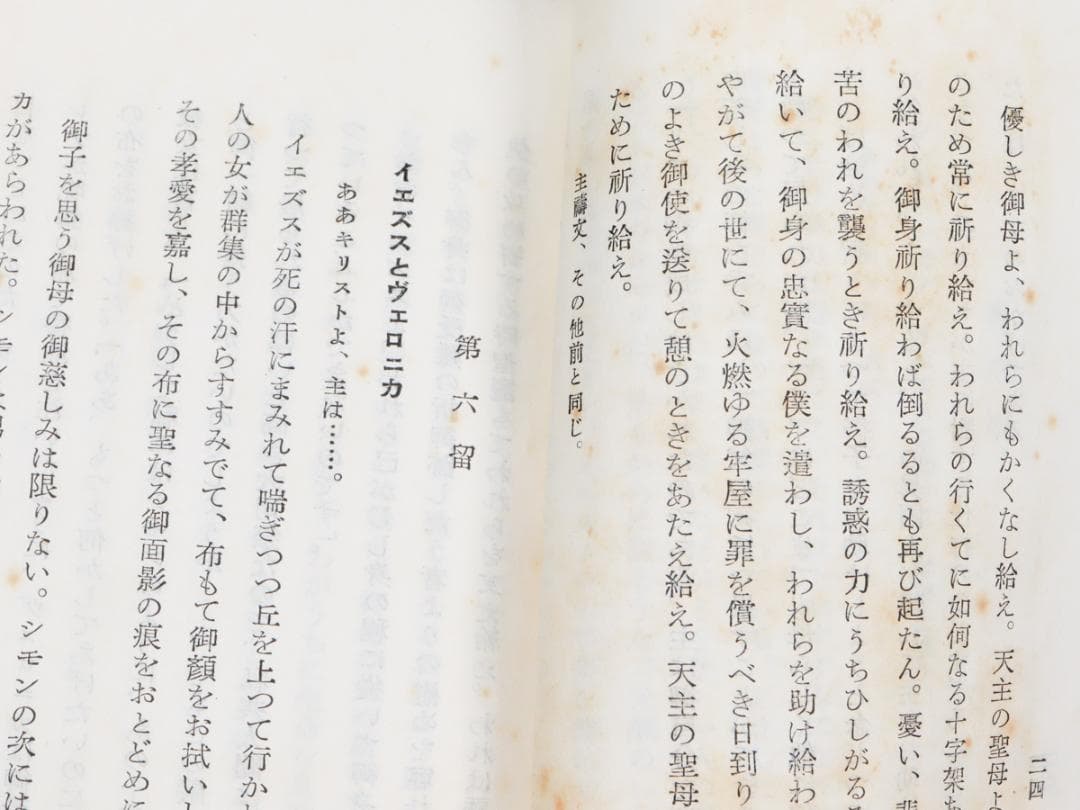 優しき御母よ、われらにもかくなし給え。天主の聖母よ
のため常に祈り給え。われらの行くてに如何なる十字架
り給え。御身祈り給わば倒るるとも再び起たん。憂い、悲
苦のわれを襲うとき祈り給え。誘惑の力にうちひしがるる
給いて、御身の忠實なる僕を遣わし、われらを助け給わ
やがて後の世にて、火燃ゆる牢屋に罪を償うべき日到り
のよき御使を送りて憩のときをあたえ給え。天主の聖母
ために祈り給え。
主禱文、その他前と同じ。
二四
第六留
イエズスとヴェロニカ
ああキリストよ、主は……。
イエズスが死の汗にまみれて喘ぎつつ丘を上つて行か
人の女が群集の中からすすみでて、布もて御顏をお拭い
その孝愛を嘉し、その布に聖なる御面影の痕をおとどめに
御子を思う御母の御慈しみは限りない。シモンの次には
カがあらわれた。